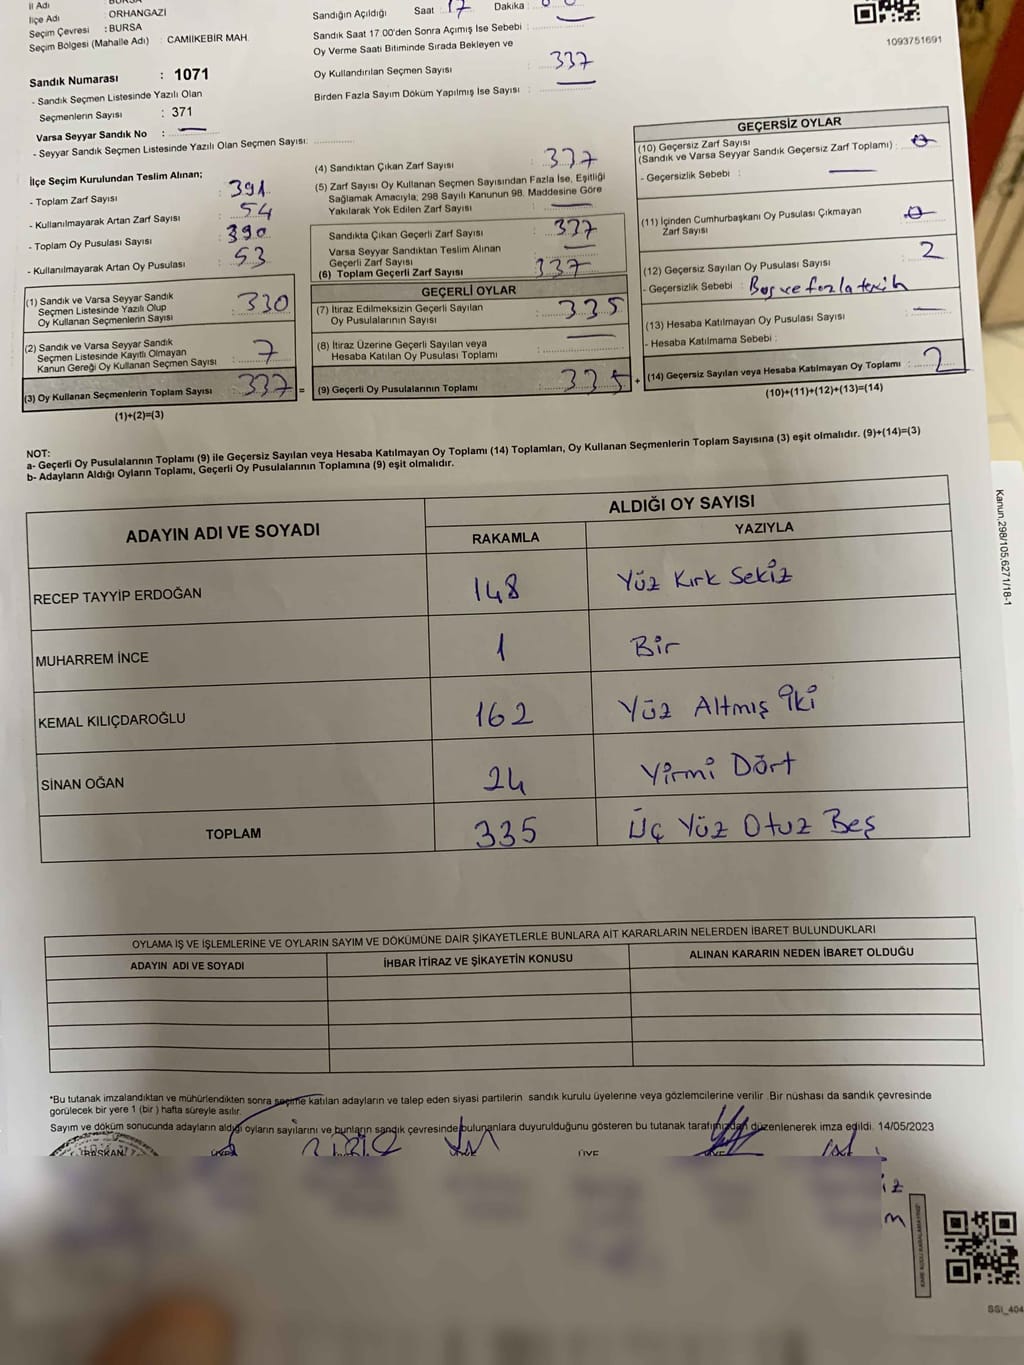 İl Adı BURSA
İlçe Adı : ORHANGAZİ
Seçim Çevresi : BURSA
Seçim Bölgesi (Mahalle Adı) : CAMİİKEBİR MAH.
Sandık Numarası : 1071
- Sandık Seçmen Listesinde Yazılı Olan
Seçmenlerin Sayısı : 371
Varsa Seyyar Sandık No : —
- Seyyar Sandık Seçmen Listesinde Yazılı Olan Seçmen Sayısı:
Sandığın Açıldığı Saat : 17 Dakika :
Sandık Saat 17.00'den Sonra Açımış İse Sebebi : —
Oy Verme Saati Bitiminde Sırada Bekleyen ve
Oy Kullandırılan Seçmen Sayısı : 337
Birden Fazla Sayım Döküm Yapılmış İse Sayısı : —
1093751691
İlçe Seçim Kurulundan Teslim Alınan;
- Toplam Zarf Sayısı : 391
- Kullanılmayarak Artan Zarf Sayısı : 54
- Toplam Oy Pusulası Sayısı : 390
- Kullanılmayarak Artan Oy Pusulası : 53
(1) Sandık ve Varsa Seyyar Sandık
Seçmen Listesinde Yazılı Olup
Oy Kullanan Seçmenlerin Sayısı : 330
(2) Sandık ve Varsa Seyyar Sandık
Seçmen Listesinde Kayıtlı Olmayan
Kanun Gereği Oy Kullanan Seçmen Sayısı : 7
(3) Oy Kullanan Seçmenlerin Toplam Sayısı : 337 =
(1)+(2)=(3)
(4) Sandıktan Çıkan Zarf Sayısı : 337
(5) Zarf Sayısı Oy Kullanan Seçmen Sayısından Fazla İse, Eşitliği
Sağlamak Amacıyla; 298 Sayılı Kanunun 98. Maddesine Göre
Yakılarak Yok Edilen Zarf Sayısı : —
Sandıkta Çıkan Geçerli Zarf Sayısı : 337
Varsa Seyyar Sandıktan Teslim Alınan
Geçerli Zarf Sayısı : —
(6) Toplam Geçerli Zarf Sayısı : 337
GEÇERLİ OYLAR
(7) İtiraz Edilmeksizin Geçerli Sayılan
Oy Pusulalarının Sayısı : 335
(8) İtiraz Üzerine Geçerli Sayılan veya
Hesaba Katılan Oy Pusulası Toplamı : —
(9) Geçerli Oy Pusulalarının Toplamı : 335 +
GEÇERSİZ OYLAR
(10) Geçersiz Zarf Sayısı
(Sandık ve Varsa Seyyar Sandık Geçersiz Zarf Toplamı) : 0
- Geçersizlik Sebebi : —
(11) İçinden Cumhurbaşkanı Oy Pusulası Çıkmayan
Zarf Sayısı : 0
(12) Geçersiz Sayılan Oy Pusulası Sayısı : 2
- Geçersizlik Sebebi : Boş ve fazla tercih
(13) Hesaba Katılmayan Oy Pusulası Sayısı : —
- Hesaba Katılmama Sebebi :
(14) Geçersiz Sayılan veya Hesaba Katılmayan Oy Toplamı : 2
(10)+(11)+(12)+(13)=(14)
NOT:
a- Geçerli Oy Pusulalarının Toplamı (9) ile Geçersiz Sayılan veya Hesaba Katılmayan Oy Toplamı (14) Toplamları, Oy Kullanan Seçmenlerin Toplam Sayısına (3) eşit olmalıdır. (9)+(14)=(3)
b- Adayların Aldığı Oyların Toplamı, Geçerli Oy Pusulalarının Toplamına (9) eşit olmalıdır.
ADAYIN ADI VE SOYADI ALDIĞI OY SAYISI
RAKAMLA YAZIYLA
RECEP TAYYİP ERDOĞAN 148 Yüz Kırk Sekiz
MUHARREM İNCE 1 Bir
KEMAL KILIÇDAROĞLU 162 Yüz Altmış İki
SİNAN OĞAN 24 Yirmi Dört
TOPLAM 335 Üç Yüz Otuz Beş
Kanun.298/105,6271/18-1
OYLAMA İŞ VE İŞLEMLERİNE VE OYLARIN SAYIM VE DÖKÜMÜNE DAİR ŞİKAYETLERLE BUNLARA AİT KARARLARIN NELERDEN İBARET BULUNDUKLARI
ADAYIN ADI VE SOYADI İHBAR İTİRAZ VE ŞİKAYETİN KONUSU ALINAN KARARIN NEDEN İBARET OLDUĞU
*Bu tutanak imzalandıktan ve mühürlendikten sonra seçime katılan adayların ve talep eden siyasi partilerin sandık kurulu üyelerine veya gözlemcilerine verilir. Bir nüshası da sandık çevresinde
görülecek bir yere 1 (bir ) hafta süreyle asılır.
Sayım ve döküm sonucunda adayların aldığı oyların sayılarını ve bunların sandık çevresinde bulunanlara duyurulduğunu gösteren bu tutanak tarafımızdan düzenlenerek imza edildi. 14/05/2023
BAŞKAN ÜYE
SSI_404